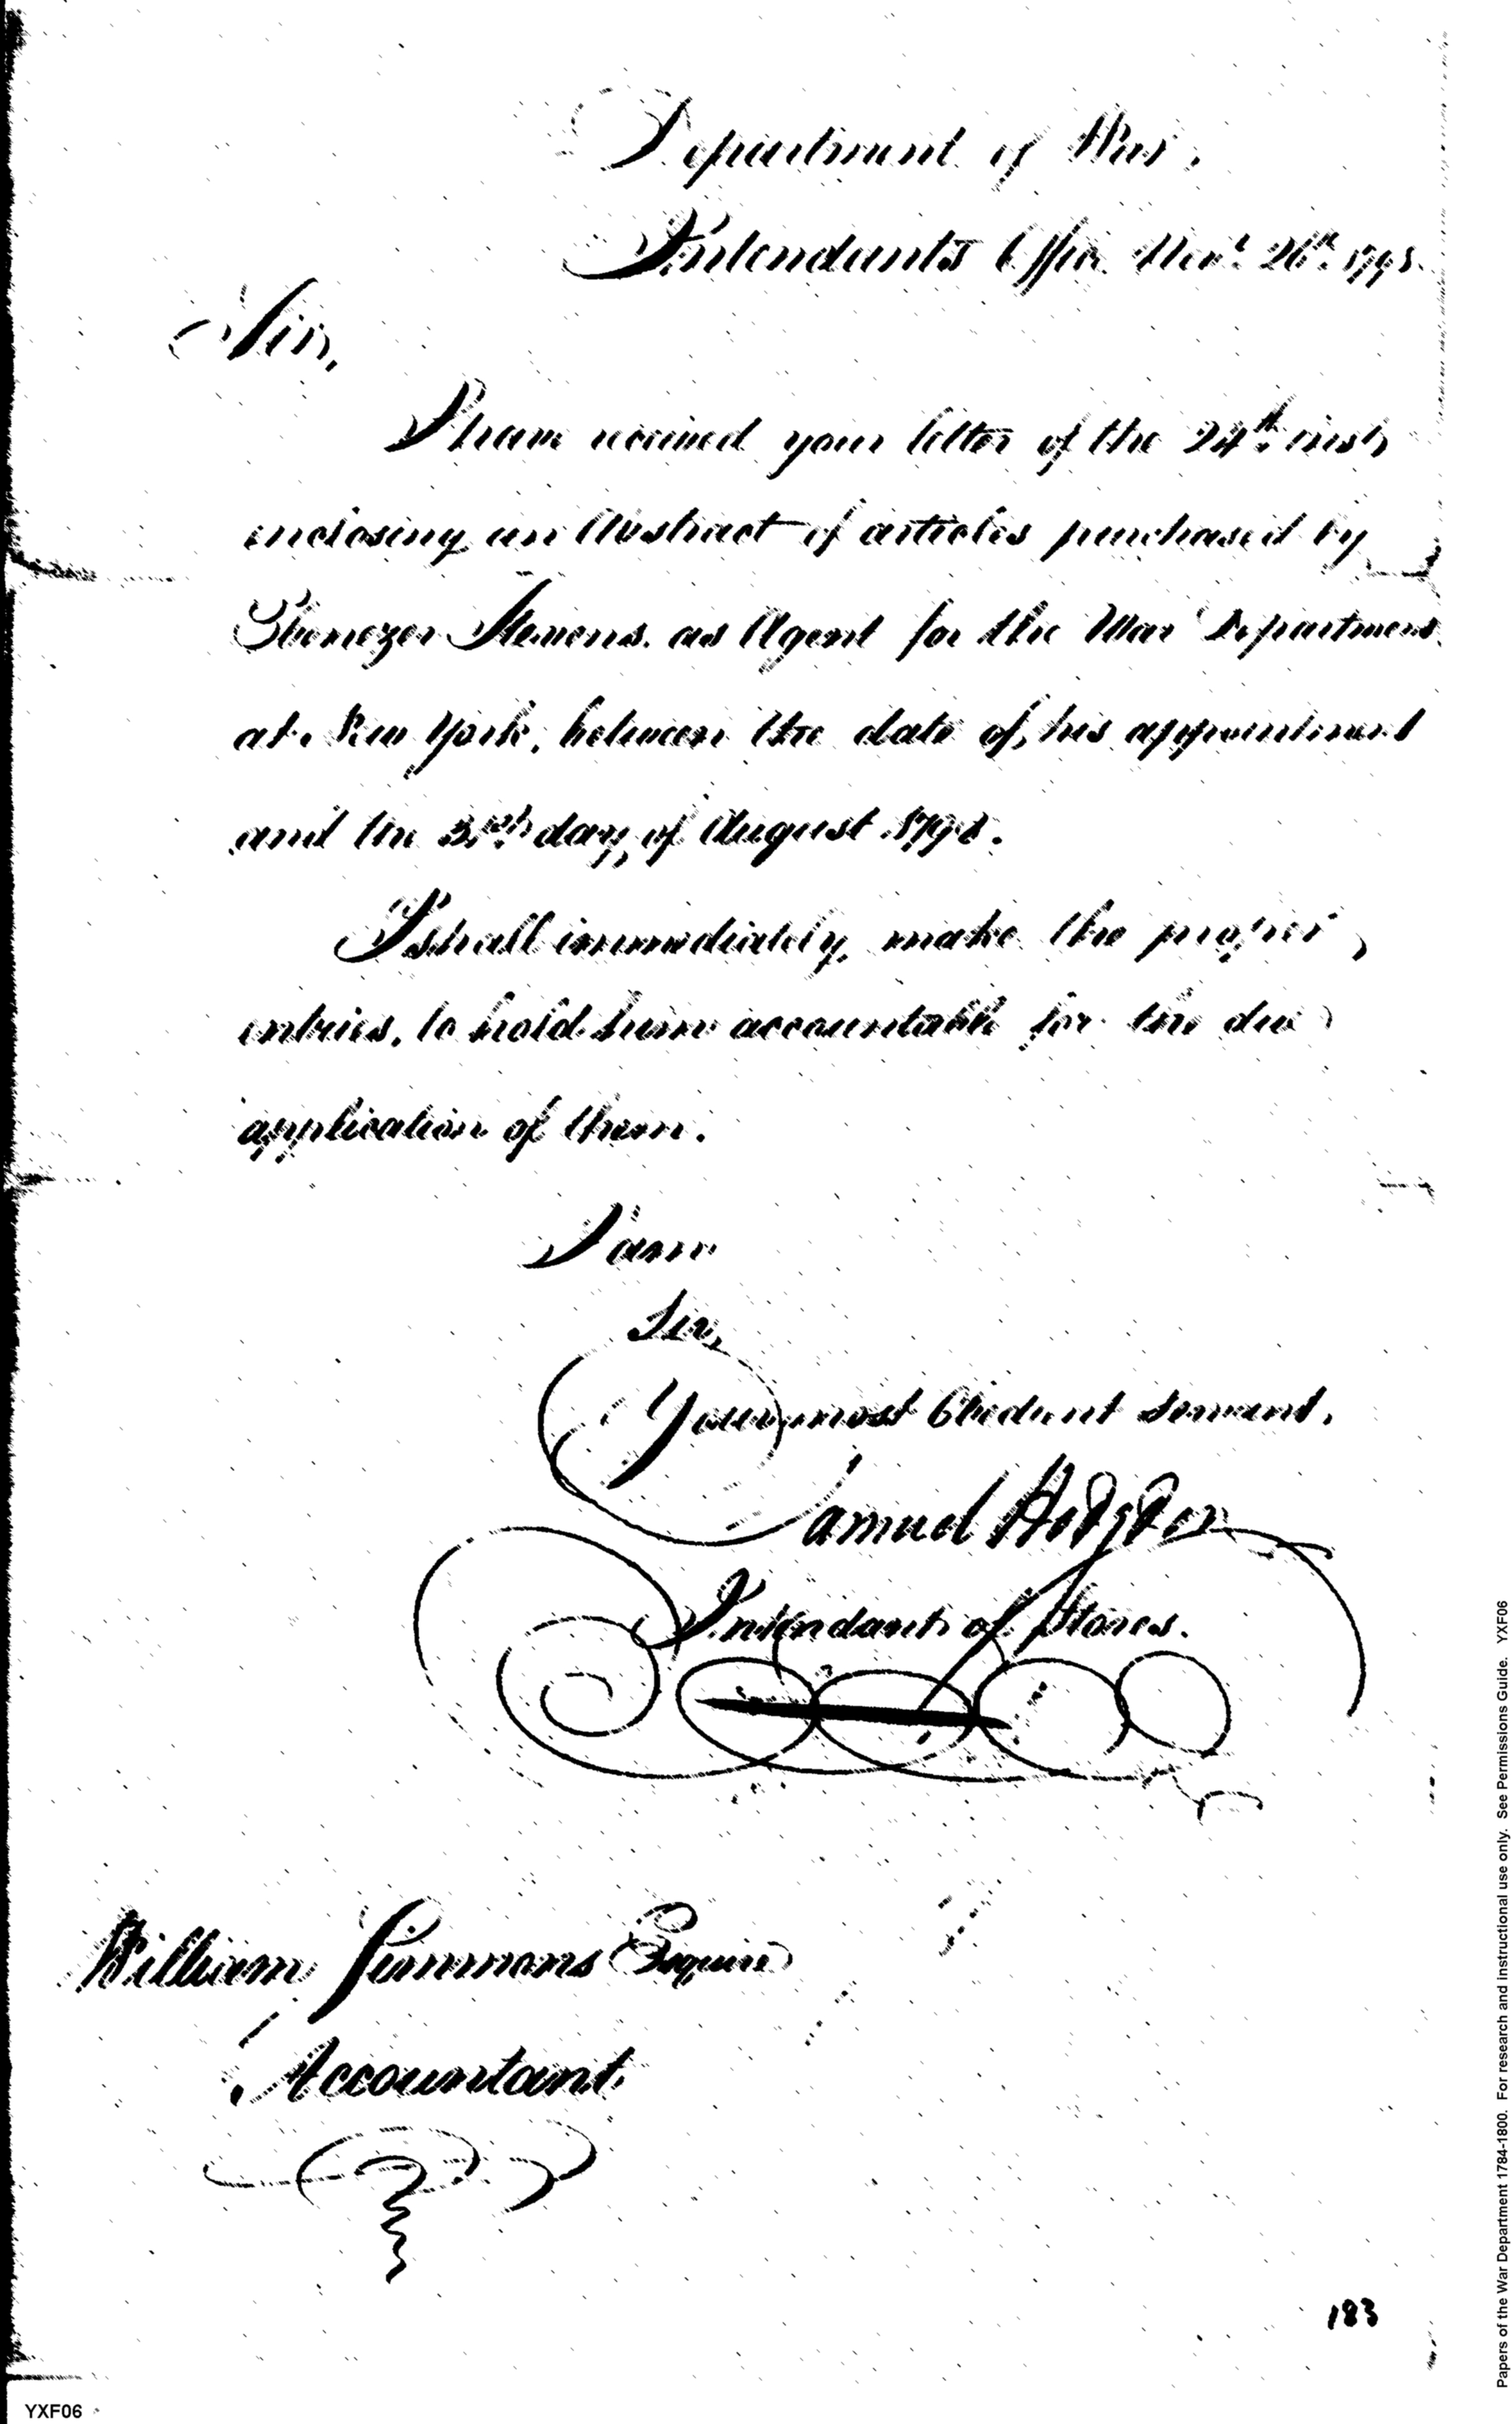 Department of War,
Intendants Office Novr. 26th. 1795.
Sir,
I have received your letter of the 24th. inst,
inclosing an Abstract of articles purchased by
Ebenezer Stevens. as Agent for the War Department
at New York, between the date of his appointment
and the 31st. day of August 1795.
I shall immediately, make the proper
entries, to hold him accountable for the due
application of them.
I am
Sir,
Your most Obedient Servant.
Samuel Hodgdon
Intendant of Stores.
William Simmons Esquire
Accountant.
183
YXF06
Papers of the War Department 1784-1800. For research and instructional use only. See Permissions Guide. YXF06